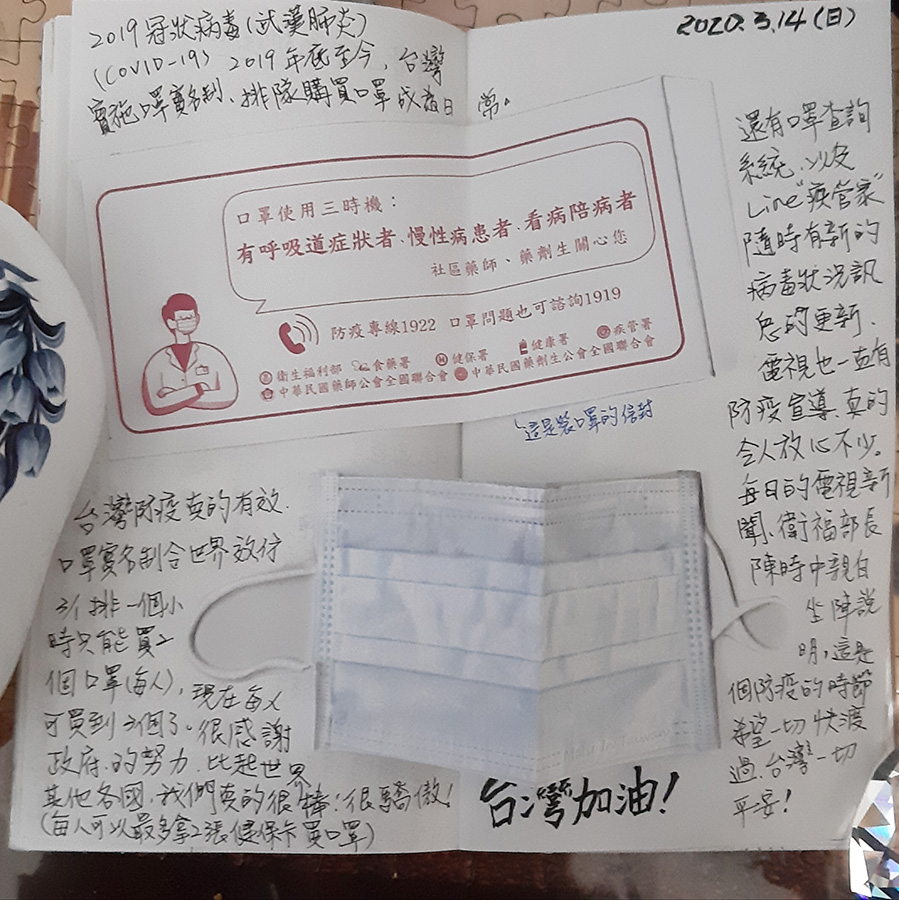 2019冠狀病毒(武漢肺炎)
(COVID-19) 2019年底至今,台灣
實施口罩實名制、排隊購買口罩成為日常。
2020.3.14(日)
口罩使用三時機:
有呼吸道症狀者、慢性病患者、看病陪病者
社區藥師、藥劑生關心您
防疫專線1922 口罩問題也可諮詢1919
衛生福利部 食藥署 健保署 健康署 疾管署
中華民國藥師公會全國聯合會 中華民國藥劑生公會全國聯合會
這是裝口罩的信封
台灣防疫真的有效.
口罩實名制令世界效仿
排一個小
時只能買2
個口罩(每人), 現在每人
可買到3個了。很感謝
政府的努力.比起世界
其他各國,我們真的很棒;很驕傲!
(每人可以最多拿2張健保卡買口罩)
還有口罩查詢
系統.以及
Line"疾管家"
隨時有新的
病毒狀況訊
息的更新.
電視也一直有
防疫宣導.真的
令人放心不少。
每日的電視新
聞、衛福部長
陳時中親自
坐陣說
明,這是
個防疫的時節
希望一切快渡
過.台灣一切
平安!
台灣加油!